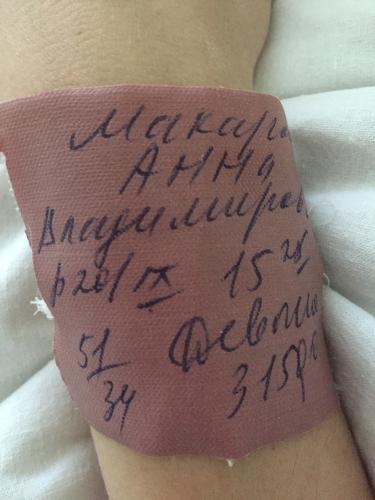 Макаро
АННА
Владимиров
р 20/IX 15 25
51/34 Девочка
3150